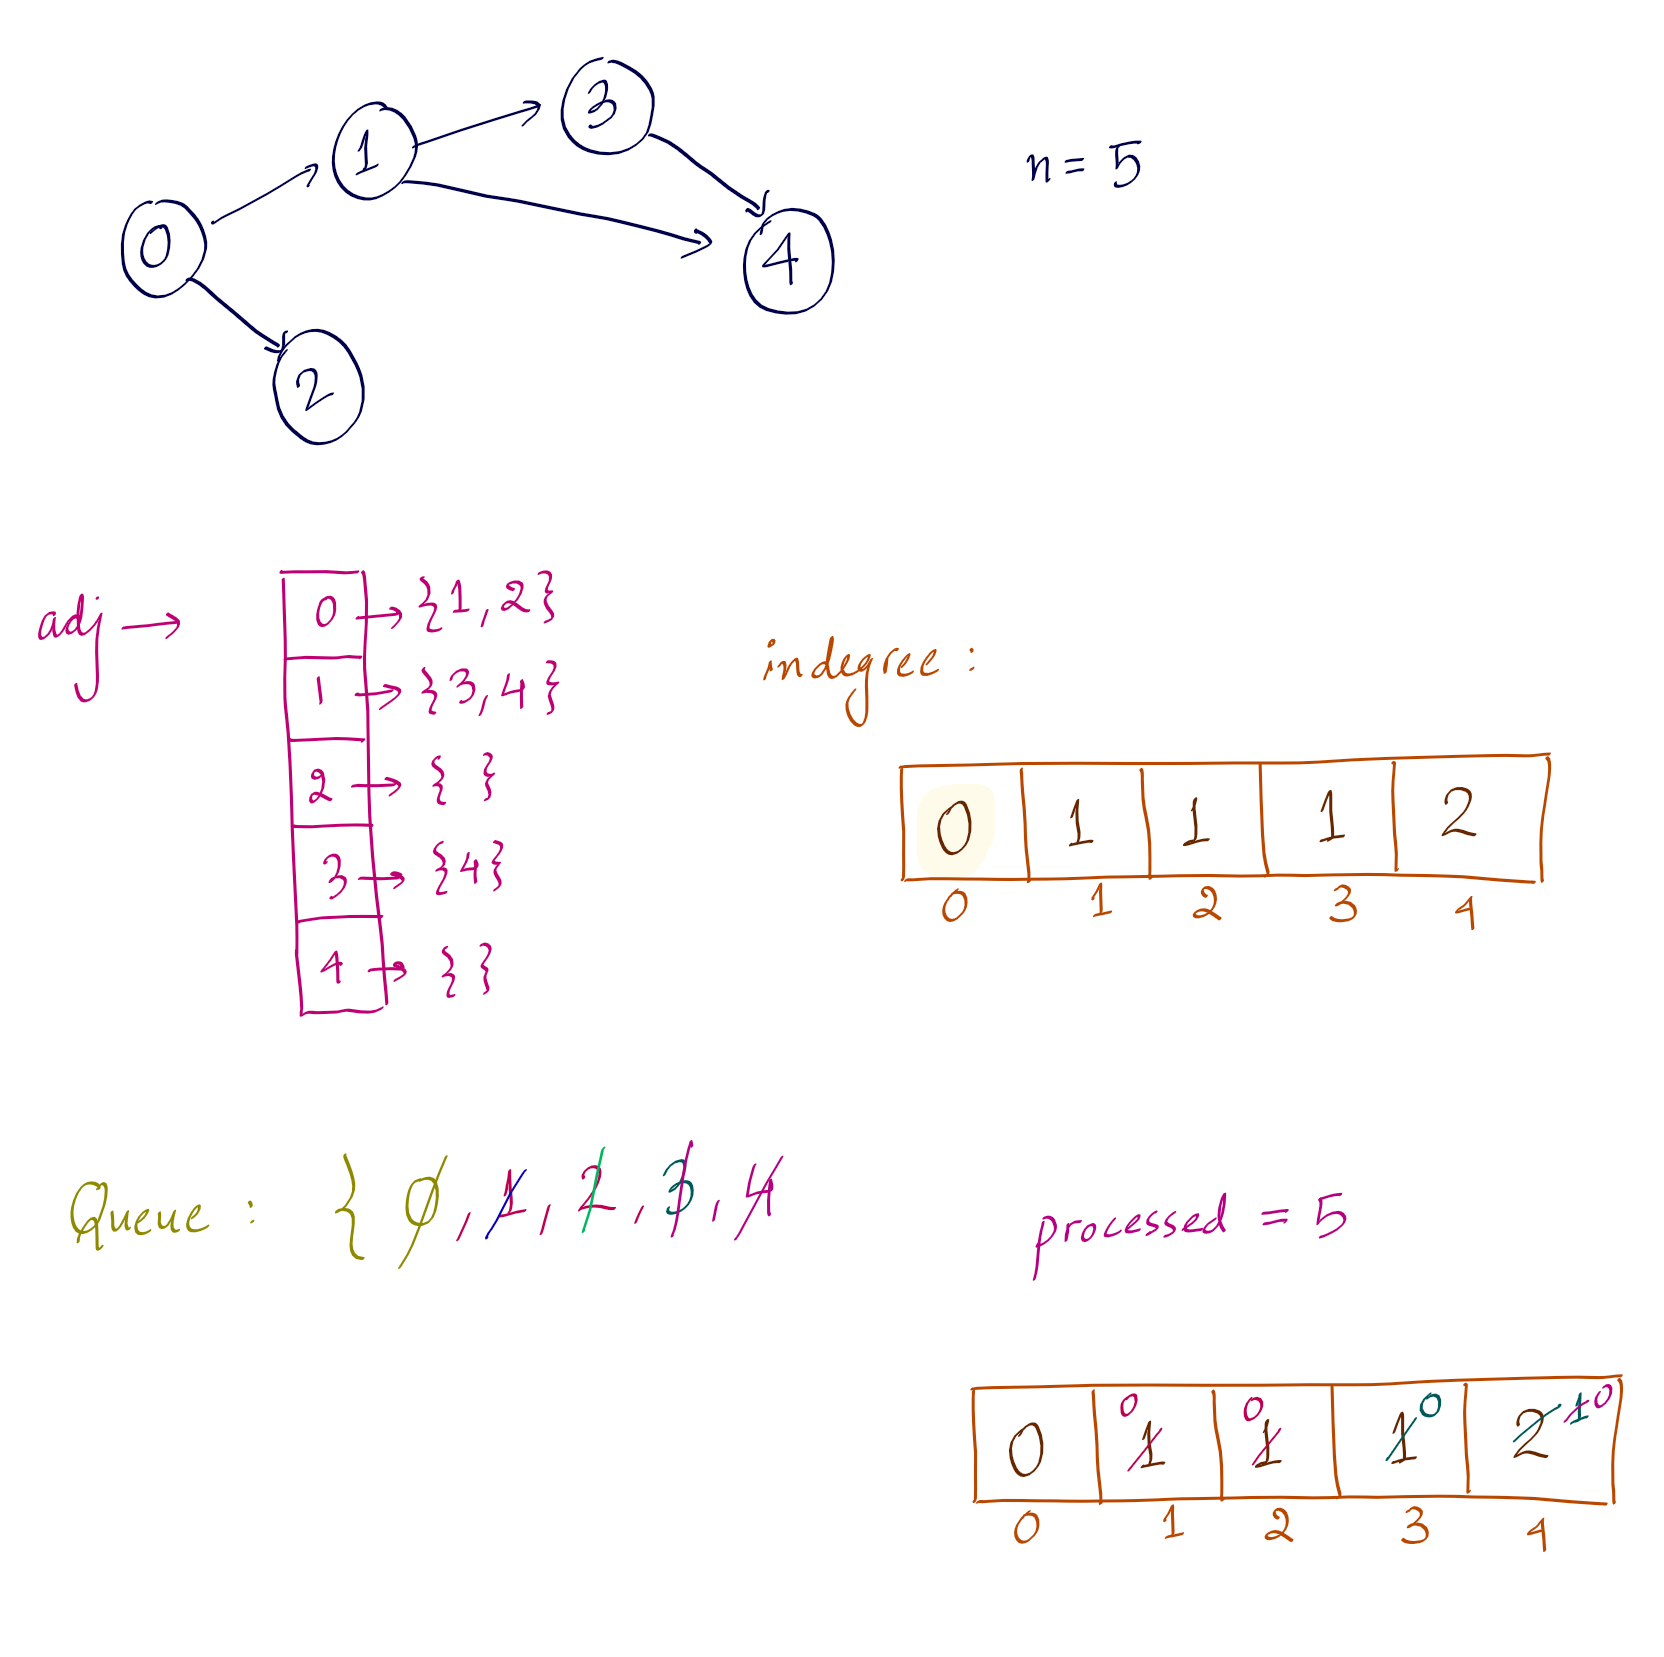 3
1
n = 5
0
4
2
adj →
0 → {1, 2}
1 → {3, 4}
2 → { }
3 → {4}
4 → { }
indegree :
0 1 1 1 2
0 1 2 3 4
Queue : { 0, 1, 2, 3, 4
processed = 5
0 0 0 1 0
0 1 1 1 2
0 1 2 3 4